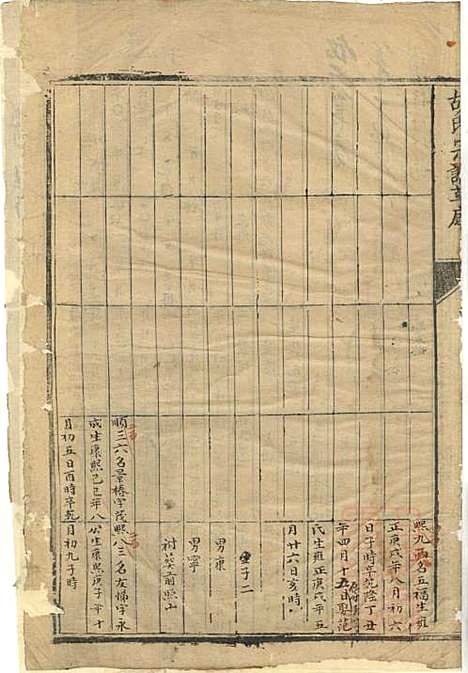 胡氏宗譜
熙九兩名五福生雍
正庚戌年八月初六
日子時卒乾隆丁丑
年四月十五日娶范
氏生雍正庚戌年五
月廿六日亥時
生子二
男康
男寧
祔葬前照山
熙八三名友悌字永
公生康熙庚子年十
月初九子時
順三六名景椿字茂
成生康熙己巳年八
月初五日酉時卒乾